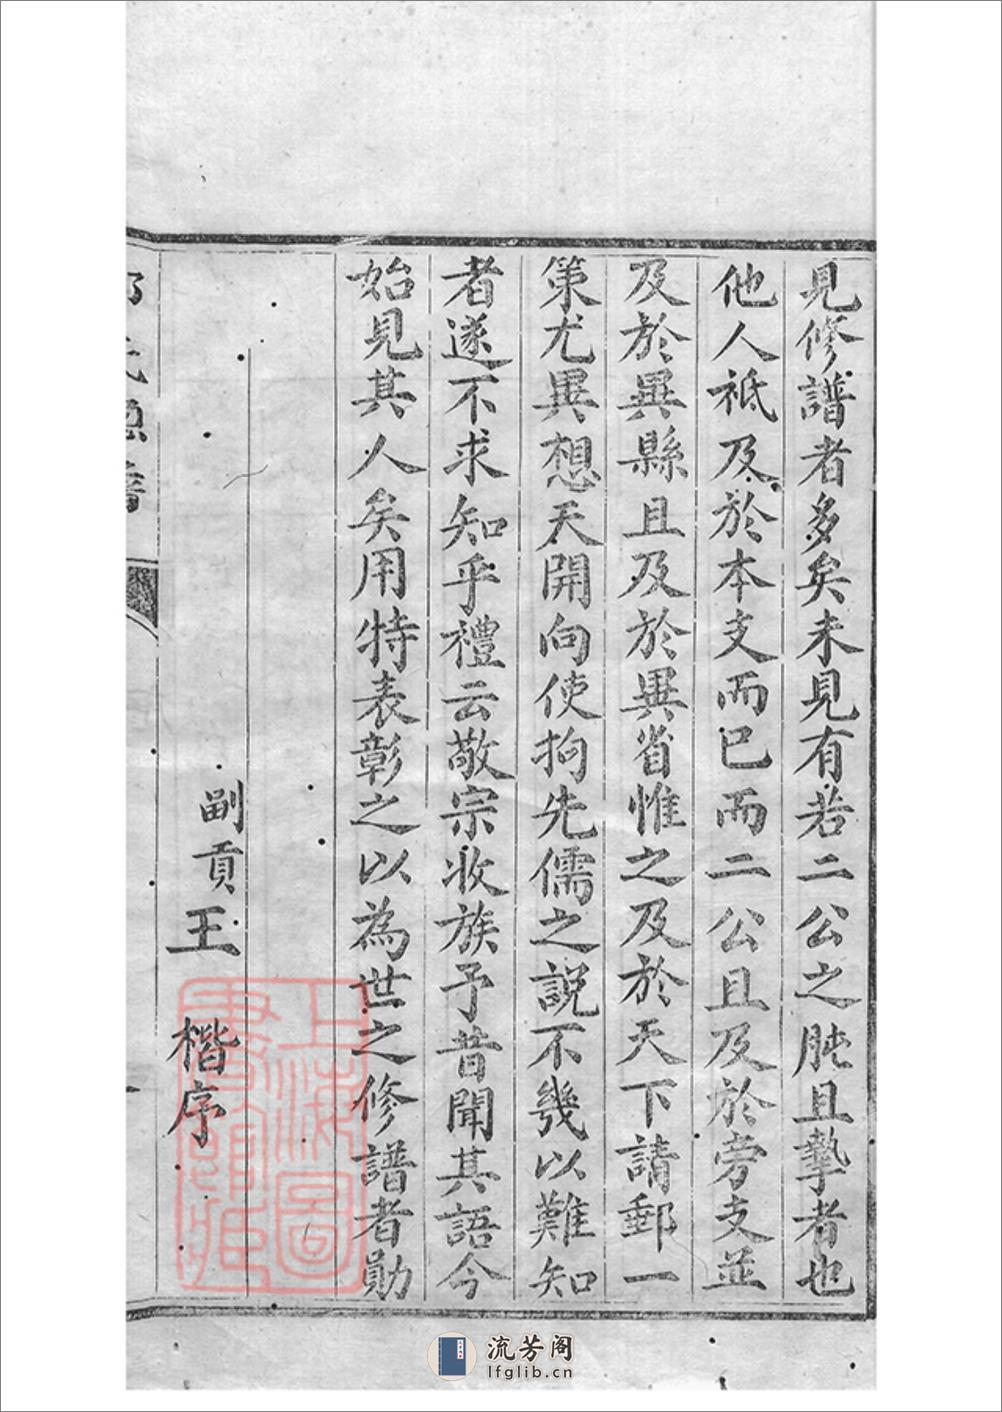 見修譜者多矣未見有若二公之肫且摯者也
他人祗及於本支而已而二公且及於旁支並
及於異縣且及於異省惟之及於天下請郵一
第尤異想天開向使拘先儒之說不幾以難知
者遂不求知乎禮云敬宗收族予昔聞其語今
始見其人矣用特表彰之以為世之修譜者勛
副貢王 楷序
上海圖
書館藏
流芳阁
lfglib.cn